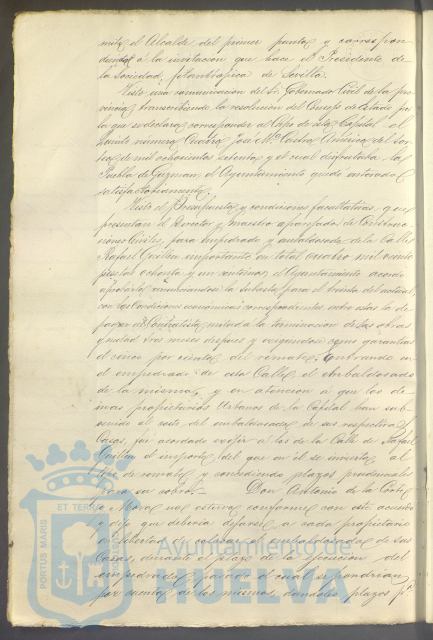 mita el Alcalde del primer punto y correspon
diendo á la invitacion que hace el Presidente de
la Sociedad filantrópica de Sevilla.
Vista una comunicacion del Sr. Gobernador Civil de la pro
vincia transcribiendo la resolucion del Consejo de Estado por
la que se declara corresponder al Cupo de esta Capital el
quinto número Cuatro José Mª Castro del Sor
teo de mil ochocientos setenta y el cual disputaba la
Puebla de Guzman, el Ayuntamiento quedó enterado
satisfactoriamente.
Visto el Presupuesto y condiciones facultativas que
presentan el Director y maestro aparejador de Construc
ciones Civiles, para empedrado y embaldosado de la Calle
Rafael Guillen importante en total cuatro mil ciento
pesetas ochenta y un centimos, el Ayuntamiento acordó
aprobarlo anunciandose la subasta para el treinta del actual,
con las Condiciones económicas correspondientes entre estas la de
pagar al Contratista mitad a la terminacion de las obras
y mitad tres meses despues y exigiendose como garantia
el cinco por ciento del remate. Entrando en
el empedrado de esta Calle el embaldosado
de la misma, y en atencion á que los de
mas propietarios Urbanos de la Capital han sub
venido al coste del embaldosado de sus respectivas
Casas, fué acordado exigir a los de la Calle de Rafael
Guillen el importe del que en él se invierta al
tipo de remate y concediendo plazos prudenciales
para su cobro. Don Antonio de la Corte
y Mora no estuvo conforme con este acuerdo
y dijo que deberia dejarse a cada propietario
en libertad de colocar el embaldosado de sus
Casas, durante el plazo de la ejecucion del
empedrado, pasado el cual se pondrian
por cuenta de los mismos, dandoles plazos pª
PORTUS MARIS
ET TERRÆ
Ayuntamiento de
HUELVA